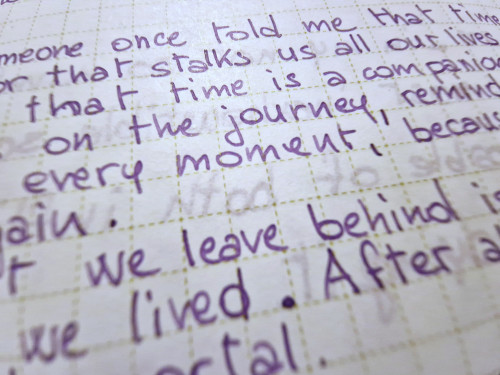 meone once told me that time
or that stalks us all our lives
that time is a companion
on the journey, remind
every moment, becaus
gain.
we leave behind is
we lived. After a
ortal.